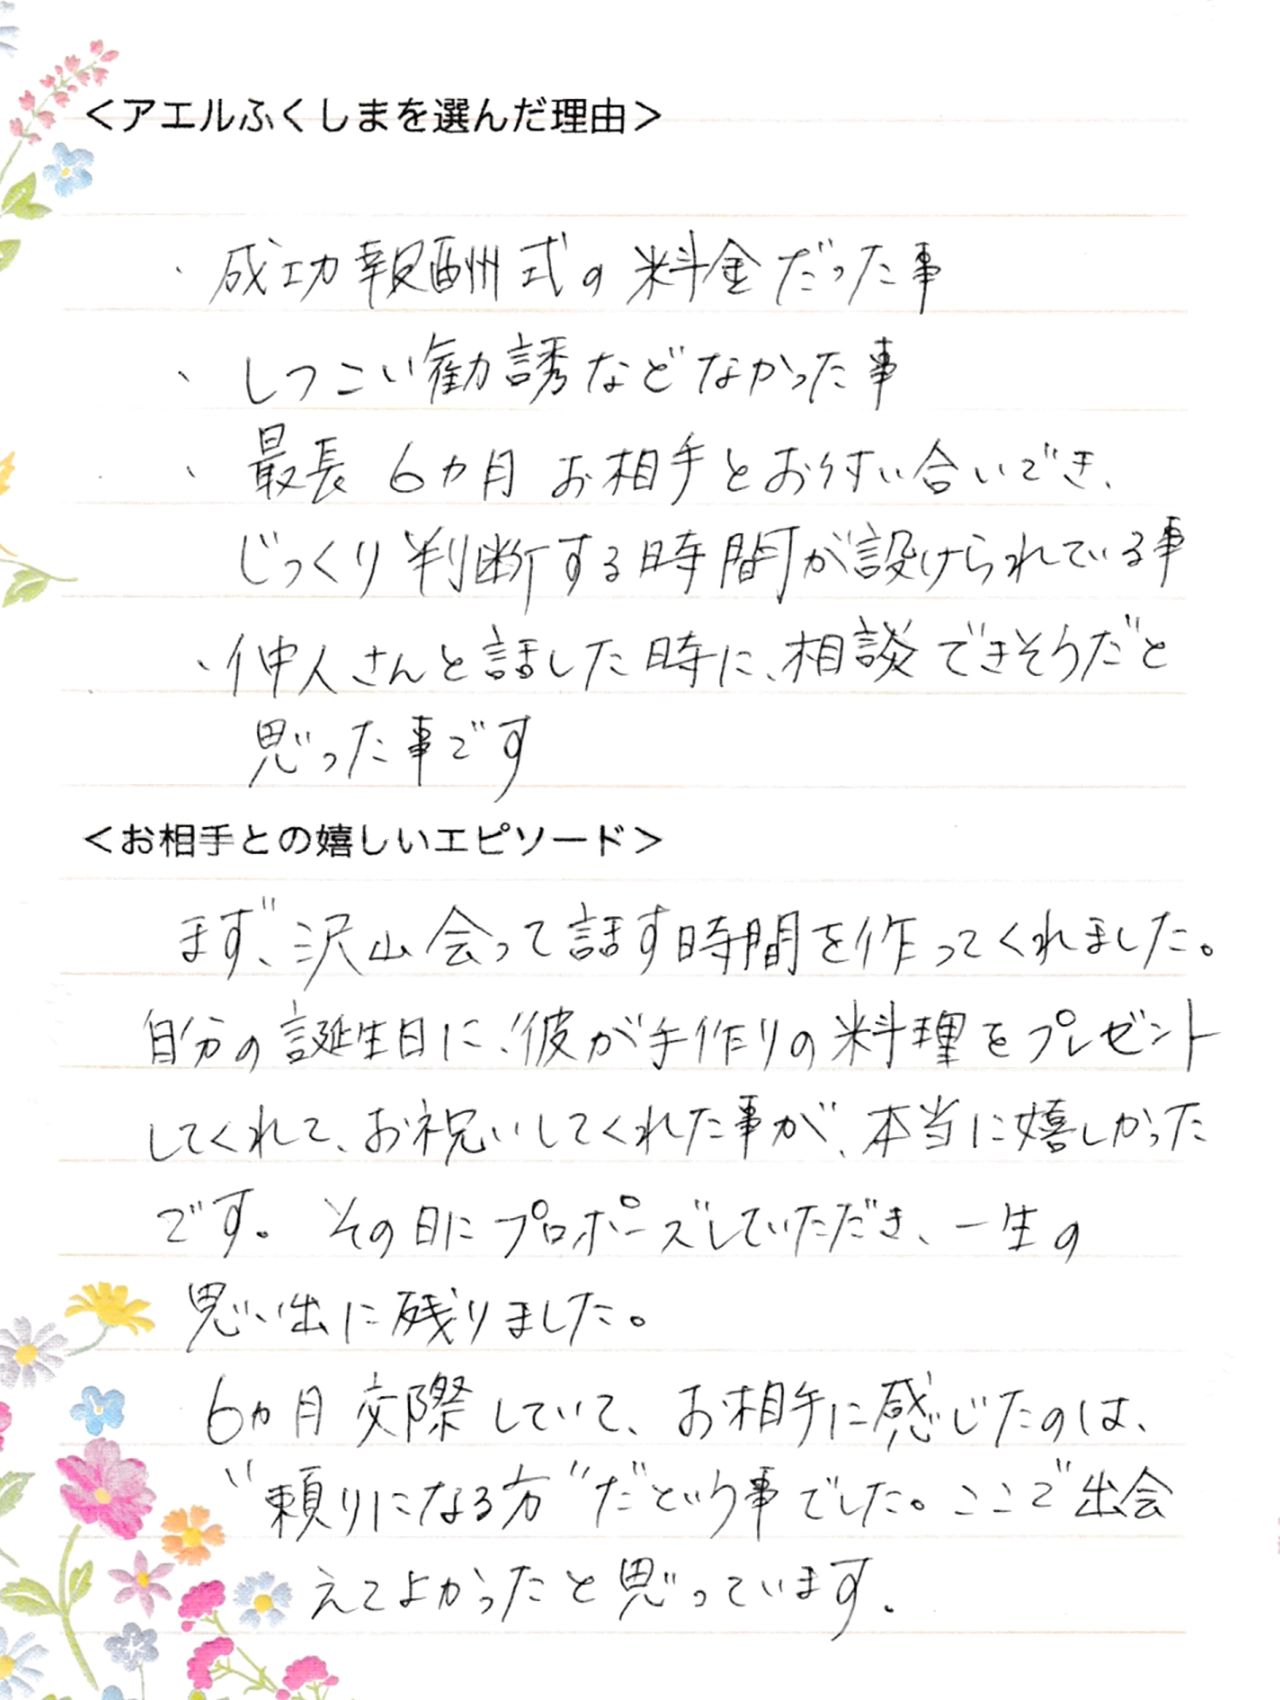 ＜アエルふくしまを選んだ理由＞
・成功報酬式の料金だった事
、しつこい勧誘などなかった事
、最長 6カ月 お相手とお付き合いでき、
じっくり判断する時間が設けられている事
、仲人さんと話した時に、相談できそうだと
思った事です
＜お相手との嬉しいエピソード＞
まず、沢山会って話す時間を作ってくれました。
自分の誕生日に、彼が手作りの料理をプレゼント
してくれて、お祝いしてくれた事が、本当に嬉しかった
です。その日にプロポーズしていただき、一生の
思い出に残りました。
6ヵ月交際していて、お相手に感じたのは、
“頼りになる方”だという事でした。ここで出会
えてよかったと思っています。